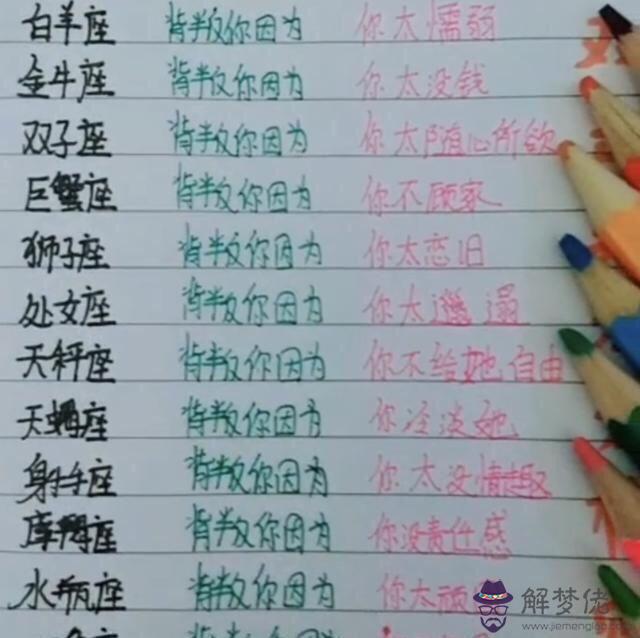 白羊座 背叛你因为 你太懦弱
金牛座 背叛你因为 你太没钱
双子座 背叛你因为 你太随心所欲
巨蟹座 背叛你因为 你不顾家
狮子座 背叛你因为 你太恋旧
处女座 背叛你因为 你太邋遢
天秤座 背叛你因为 你不给她自由
天蝎座 背叛你因为 你冷淡她
射手座 背叛你因为 你太没情趣
摩羯座 背叛你因为 你没责任感
水瓶座 背叛你因为 你太顽
解梦佬
www.jiemenglao.com